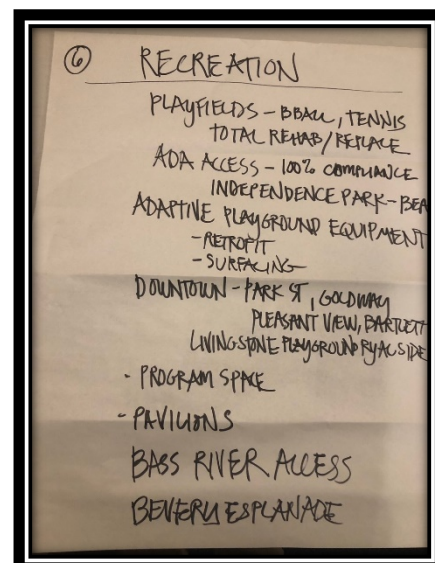 6 RECREATION
PLAYFIELDS - BBALL, TENNIS
TOTAL REHAB/REPLACE
ADA ACCESS - 100% COMPLIANCE
INDEPENDENCE PARK - BEA
ADAPTIVE PLAYGROUND EQUIPMENT
- RETROFIT
- SURFACING
DOWNTOWN - PARK ST, GOLDWAY
PLEASANT VIEW, BARTLETT
LIVINGSTONE PLAYGROUND RYALSIDE
- PROGRAM SPACE
- PAVILIONS
BASS RIVER ACCESS
BEVERLY ESPLANADE